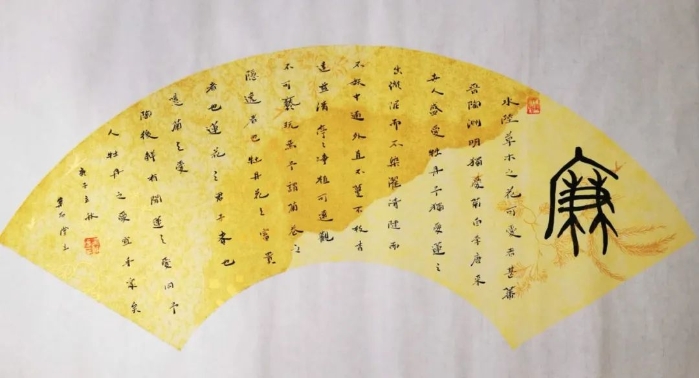 廉
水陸草木之花可愛者甚蕃
晉陶淵明獨愛菊自李唐來
世人盛愛牡丹予獨愛蓮之
出淤泥而不染濯清漣而
不妖中通外直不蔓不枝香
遠益清亭々淨植可遠觀
不可褻玩焉予謂菊花之
隱逸者也牡丹花之富貴
者也蓮花之君子者也
噫菊之愛
陶後鮮有聞蓮之愛同予
人牡丹之愛宜乎眾矣
庚子